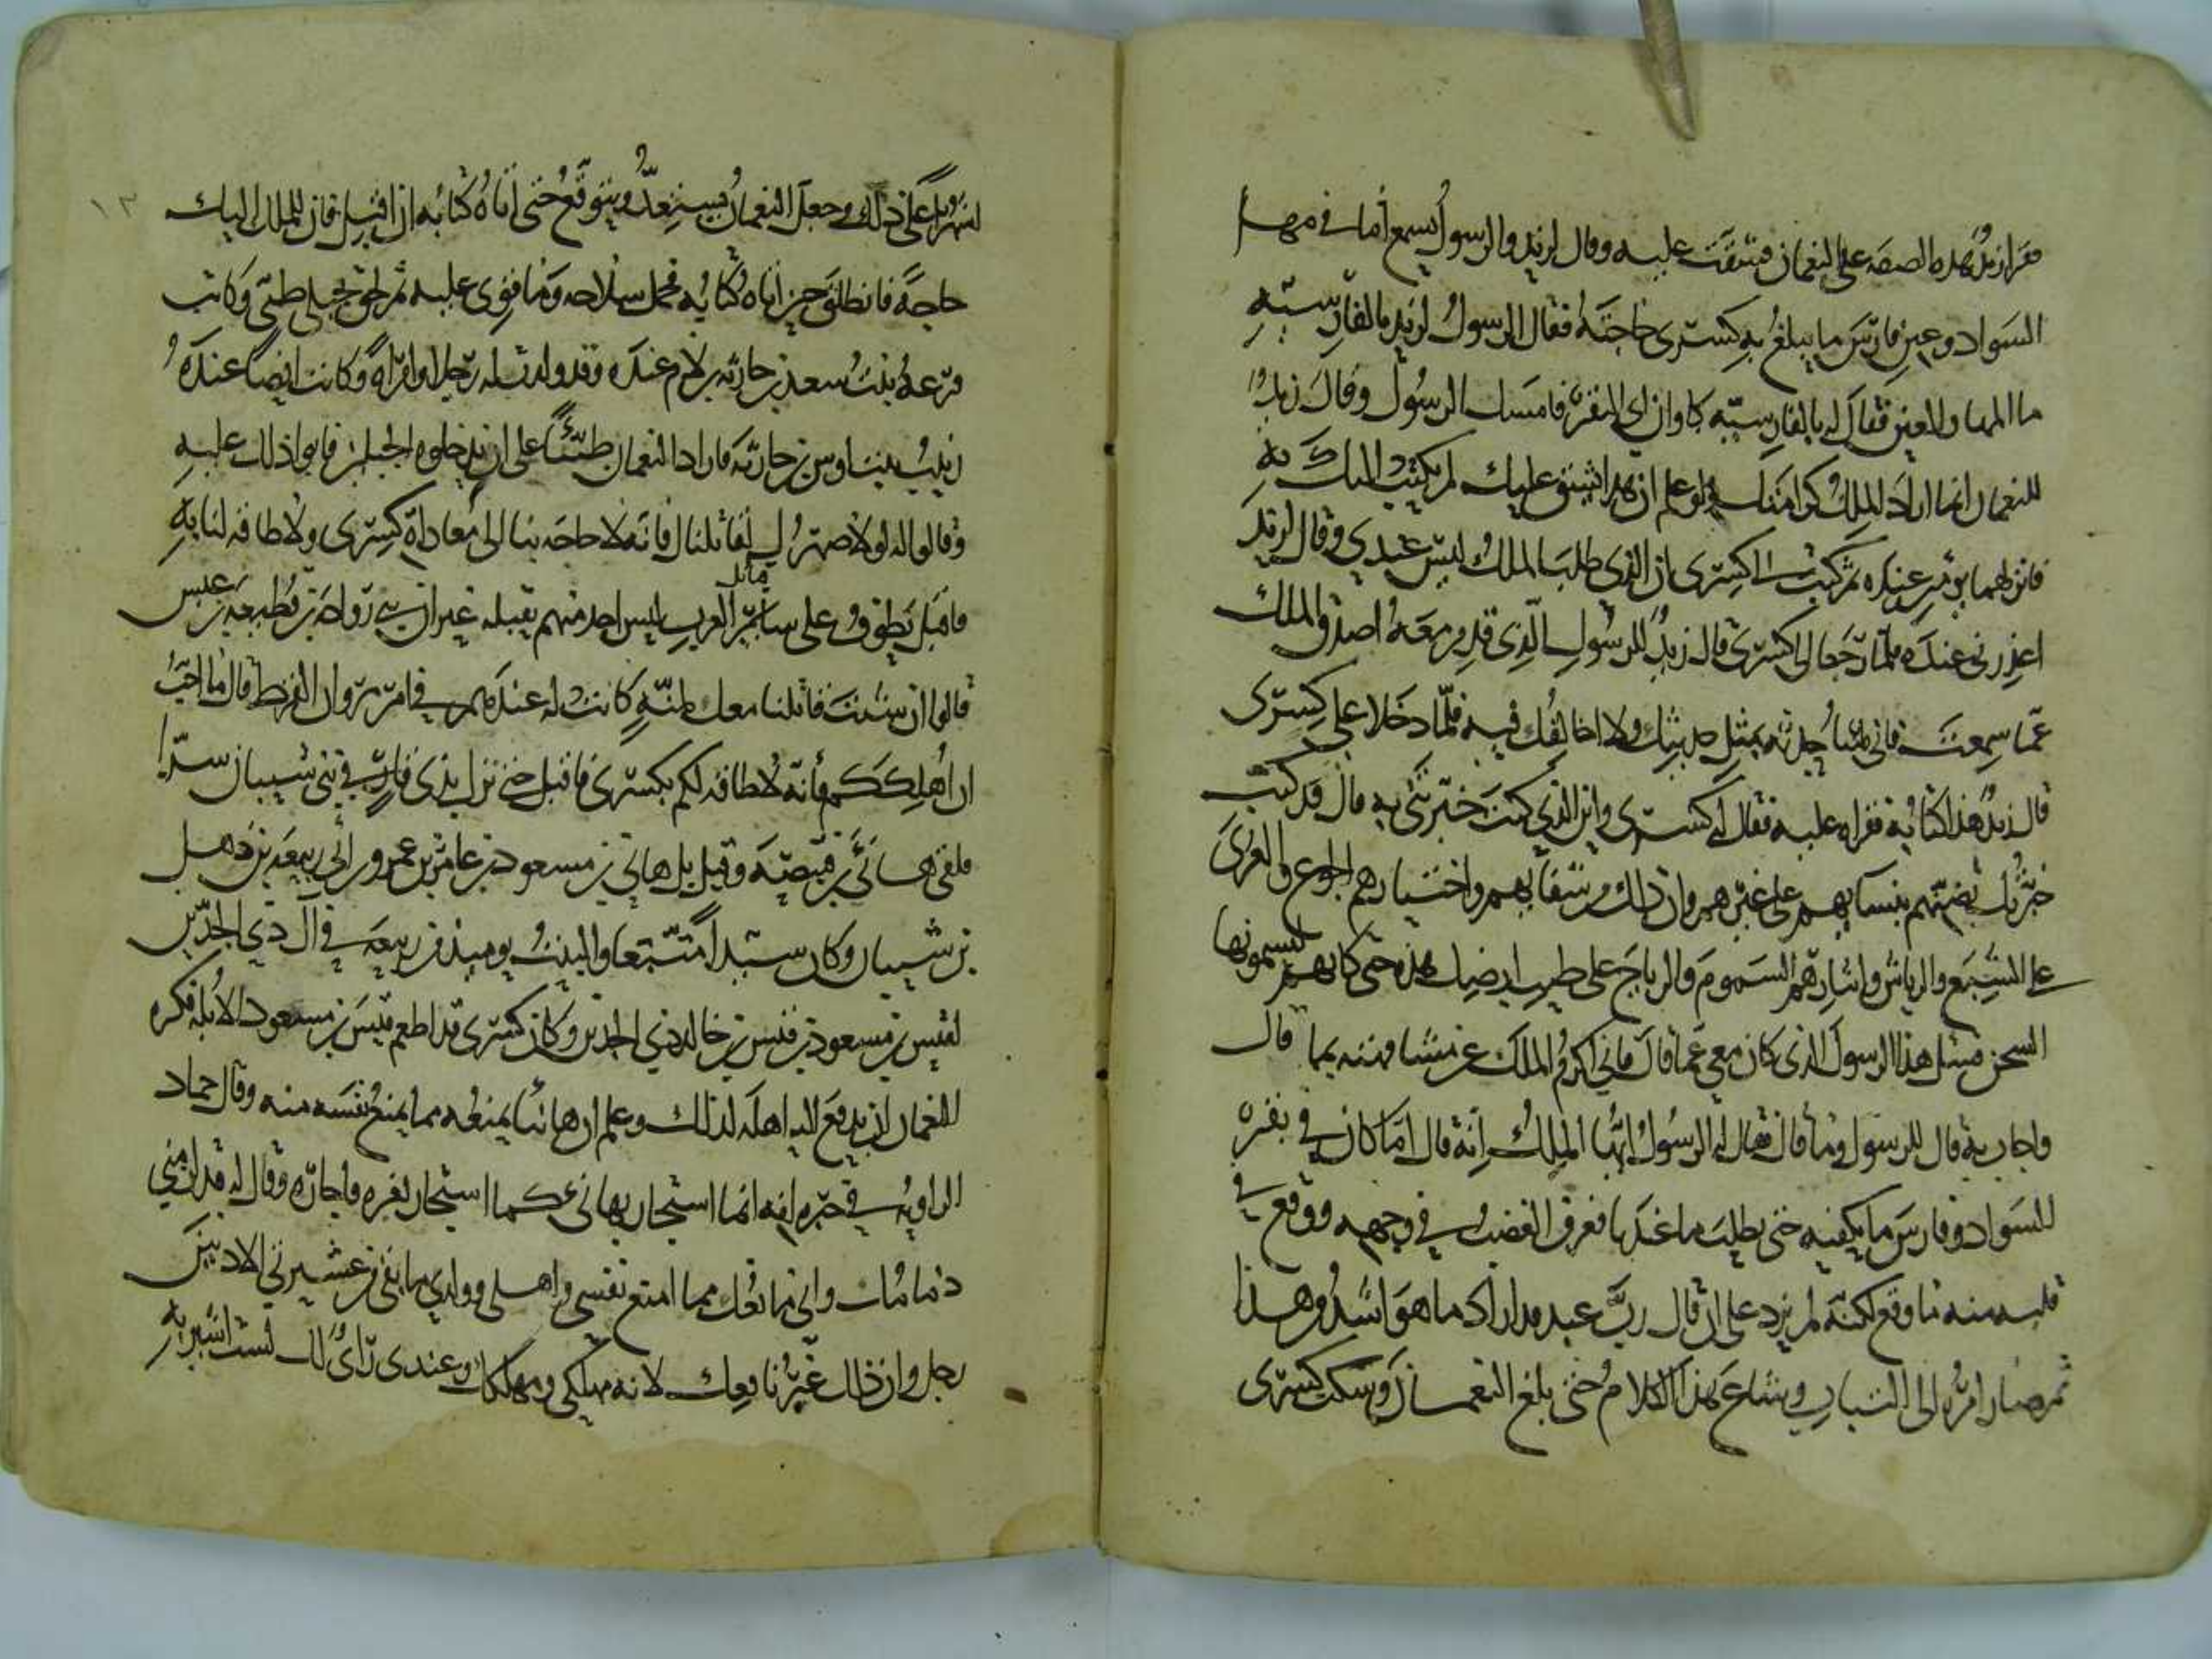 فقرا زيد هذه الصفه على النعمان فشقت عليه وقال لزيد والرسول يسمع أما في مها
السواد وعين فارس ما يبلغ به كسرى حاجته فقال الرسول لزيد بالفارسيه
ما المها والعين فقال له بالفارسيه كاوان اي البقر فامسك الرسول وقال زيد
للنعمان انما اراد الملك كرامتك ولو علم ان هذا يشق عليك لم يكتب اليك به
فانزلهما يومين عنده ثم كتب الى كسرى ان الذي طلب الملك ليس عندي وقال لزيد
اعذرني عنده فلما رجعا الى كسرى قال زيد للرسول الذي قدم معه اصدق الملك
عما سمعت فاني ساحدثه بمثل حديثك ولا اخالفك فيه فلما دخلا على كسرى
قال زيد هذا كتابه فقراه عليه فقال له كسرى واين الذي كنت خبرتني به قال قد كنت
خبرتك بضنتهم بنسايهم على غيرهم وان ذلك من شقايهم واختيارهم الجوع والعرى
على الشبع والرياش وايثارهم السموم والرياح على طيب ارضك هذه حتى كانهم ليسمونها
السجن فسل هذا الرسول الذي كان معي عما قال فاني اكرم الملك عن مشافهته بما قال
واجاب به قال للرسول وما قال فقال له الرسول ايها الملك انه قال اما كان في بقر
السواد وفارس ما يكفيه حتى يطلب ما عندنا فعرف الغضب في وجهه ووقع في
قلبه منه ما وقع لكنه لم يزد على ان قال رب عبد قد اراد ما هو اشد من هذا
ثم صار امره الى التباب وشاع هذا الكلام حتى بلغ النعمان وسكت كسرى
اشهرا على ذلك وجعل النعمان يستعد ويتوقع حتى أتاه كتابه ان اقبل فان للملك اليك
حاجة فانطلق حين اتاه كتابه فحمل سلاحه وما قوي عليه ثم لحق بجبلي طيئ وكانت
فرعة بنت سعد بن حارثه بن لام عنده وقد ولدت له رجلا وامراة وكانت ايضا عنده
زينب بنت اوس بن حارثه فاراد النعمان طيئا على ان يدخلوه الجبلين فابوا ذلك عليه
وقالوا له لولا صهرك لقاتلناك فانه لا حاجه بنا الى معاداة كسرى ولا طاقه لنا به
فاقبل يطوف على ساير قبائل العرب ليس احد منهم يقبله غير ان بني رواحة بن قطيعه بن عبس
قالوا ان شئت قاتلنا معك لمنة كانت له عندهم في امر مروان القرظ قال ما احب
ان اهلككم فأنه لا طاقه لكم بكسرى فاقبل حتى نزل بذي قار في بني شيبان سرا
فلقي هانئ بن قبيصه وقيل بل هاني بن مسعود بن عامر بن عمرو بن ابي ربيعه بن ذهل
بن شيبان وكان سيدا منيعا والبيت يوميذ من ربيعه في آل ذي الجدين
لقيس بن مسعود بن قيس بن خالد ذي الجدين وكان كسرى قد اطعم قيس بن مسعود الابله فكره
النعمان ان يدفع اليه اهله لذلك وعلم ان هانئا يمنعه مما يمنع نفسه منه وقال حماد
الراويه في خبره انه انما استجار بهاني كما استجار بغيره فاجاره وقال له قد لزمني
ذمامك واني مانعك مما امنع نفسي واهلي وولدي ما بقي من عشيرتي الادنين
رجل وان ذلك غير نافعك لانه مهلكي ومهلكك وعندي رأي لك لست اشير به
١٣